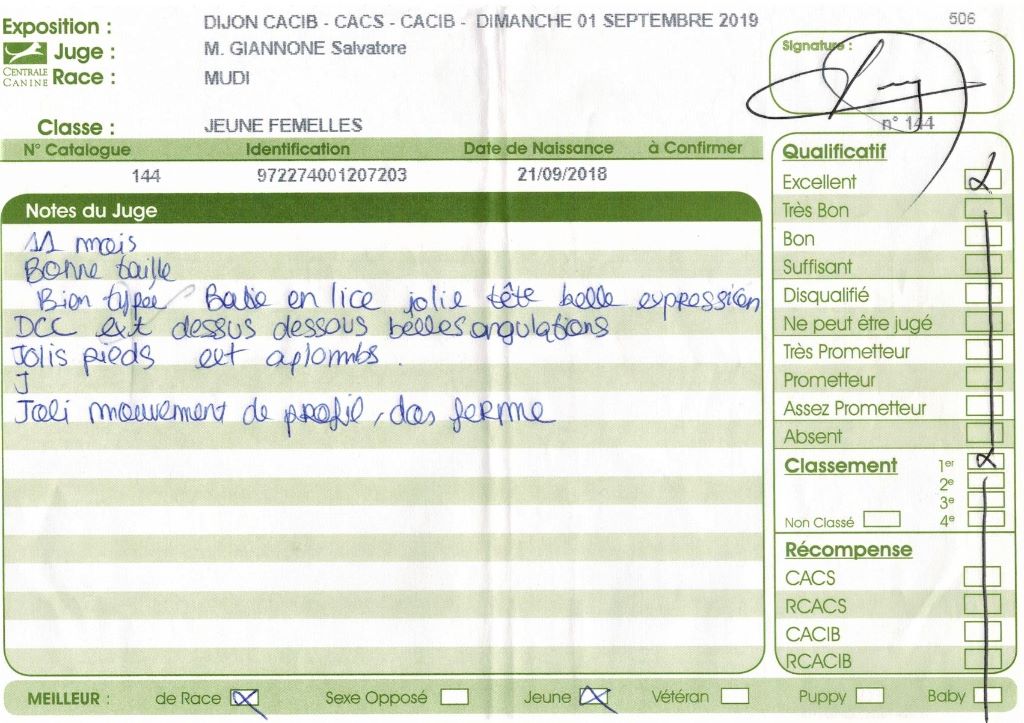 Exposition : DIJON CACIB - CACS - CACIB - DIMANCHE 01 SEPTEMBRE 2019 506
Juge : M. GIANNONE Salvatore
CENTRALE CANINE
Race : MUDI
Signature :
Classe : JEUNE FEMELLES
n° 144
N° Catalogue Identification Date de Naissance à Confirmer
144 972274001207203 21/09/2018
Notes du Juge
11 mois
Bonne taille
Bien typée Batie en lice jolie tête belle expression
DCC ext dessus dessous belles angulations
Jolis pieds et aplombs.
J
Joli mouvement de profil, dos ferme
Qualificatif
Excellent
Très Bon
Bon
Suffisant
Disqualifié
Ne peut être jugé
Très Prometteur
Prometteur
Assez Prometteur
Absent
Classement 1er
2e
3e
Non Classé 4e
Récompense
CACS
RCACS
CACIB
RCACIB
MEILLEUR : de Race Sexe Opposé Jeune Vétéran Puppy Baby